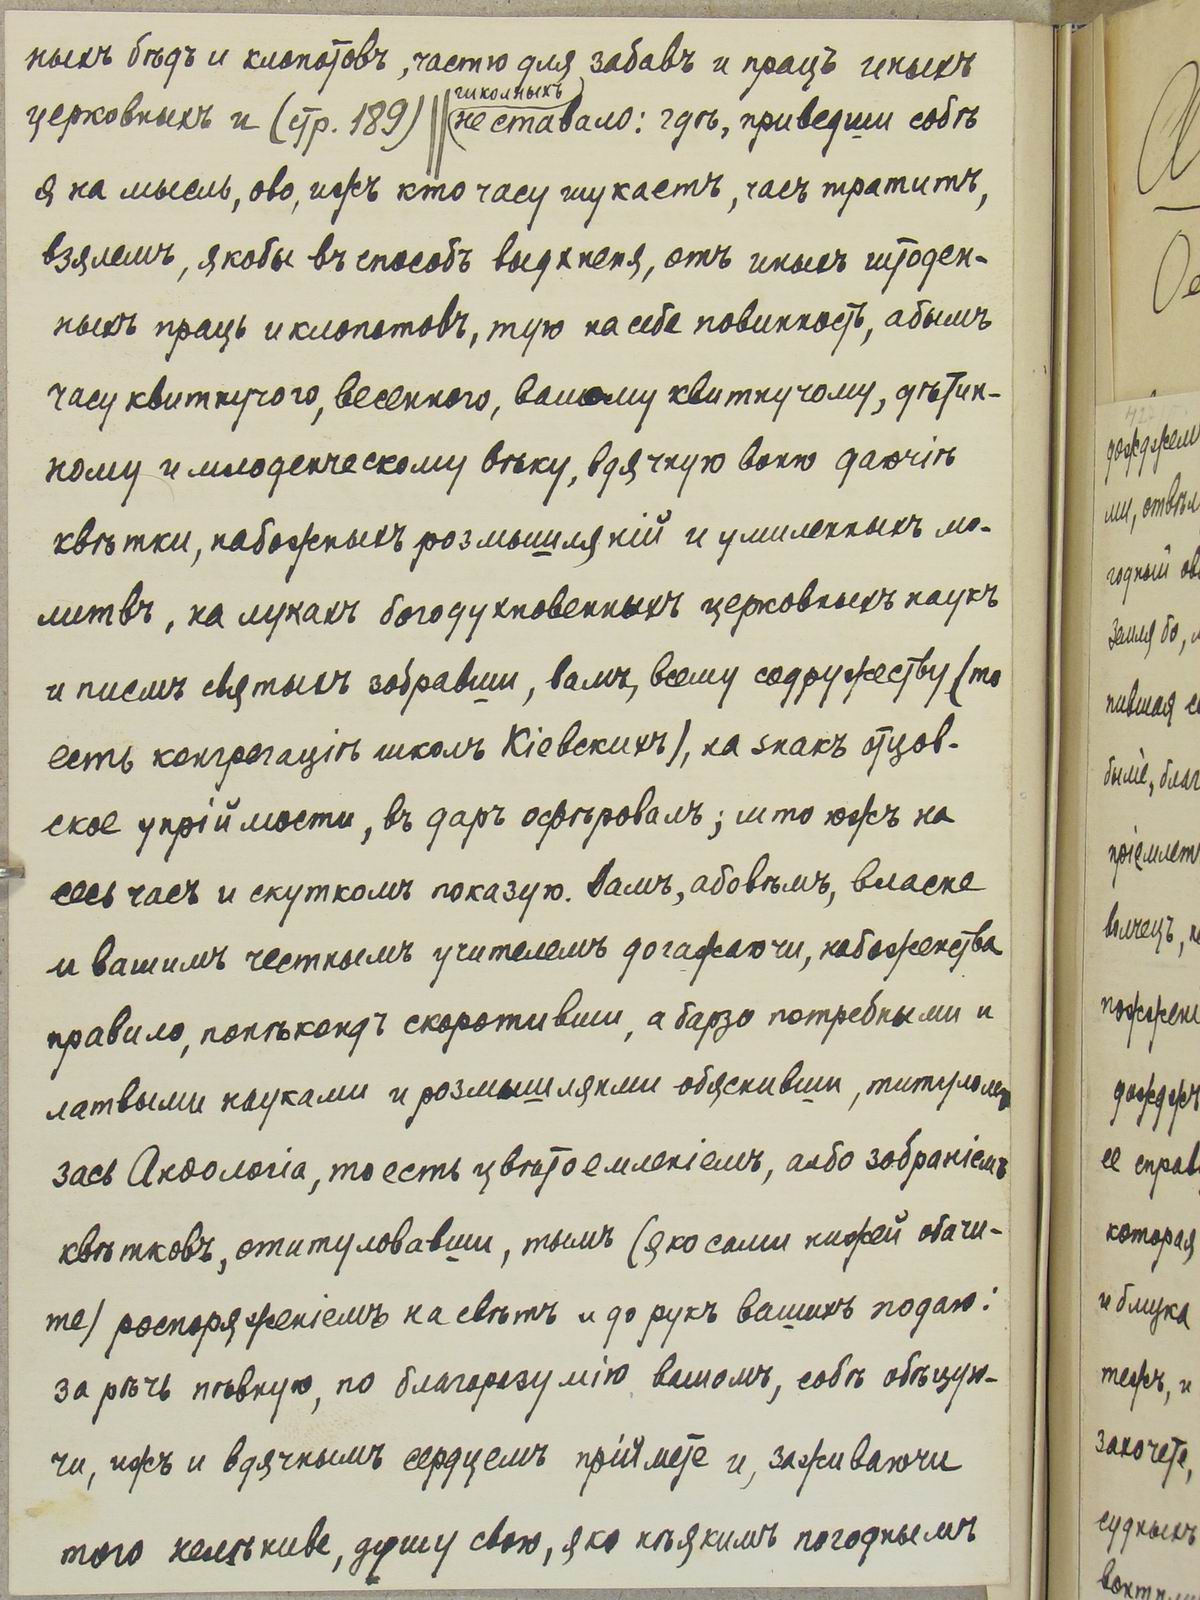 ныхъ бѣдъ и клопотовъ, частю для забавъ и працъ иныхъ
школныхъ
церковныхъ и (стр. 189) || не ставало: гдѣ, приведши собѣ
я на мысль, ово, ижъ кто часу шукаетъ, часъ тратитъ,
взялемъ, якобы въ способъ выдхненя, отъ иныхъ штоден-
ныхъ праць и клопотовъ, тую на себе повинность, абымъ
часу квитнучого, весенного, вашому квитнучому, дѣтин-
ному и младенческому вѣку, вдячную воню даючіѣ
квѣтки, набожныхъ розмышляній и умиленныхъ мо-
литвъ, на лукахъ богодухновенныхъ церковныхъ наукъ
и писмъ святыхъ зобравши, вамъ, всему содружеству (то
есть конгрегаціѣ школъ Кіевскихъ), на знакъ отцов-
ское упріймости, въ даръ офѣровалъ; што южъ на
сесь часъ и скуткомъ показую. Вамъ, абовѣмъ, власне
и вашимъ честнымъ учителемъ догажаючи, набоженства
правило, понѣкондъ скоротивши, а барзо потребными и
латвыми науками и розмышлянми обяснивши, титуломъ
зась Анѳологіа, то есть цвѣтоемленіемъ, албо зобраніемъ
квѣтковъ, отитуловавши, тымъ (яко сами нижей обачи-
те) роспоряженіемъ на свѣтъ и до рукъ вашихъ подаю:
за рѣчь пѣвную, по благоразумію вашомъ, собѣ обѣцую-
чи, ижъ и вдячнымъ сердцемъ пріймете и, заживаючи
того нелѣниве, душу свою, яко нѣякимъ погоднымъ
дожджемъ
которая
и блука
тежъ, и
захочете,
судныхъ